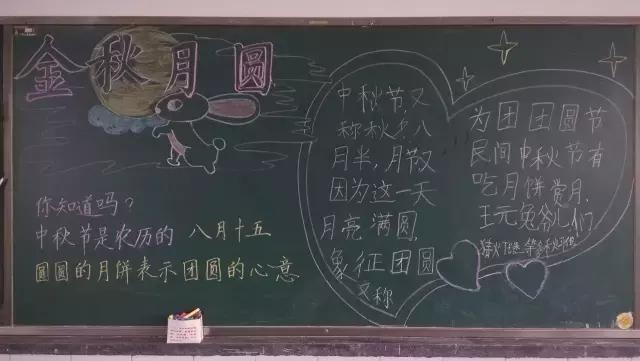 金秋月圆
你知道吗？
中秋节是农历的 八月十五
圆圆的月饼表示团圆的心意
中秋节，又
称秋节八
月半，月节又
因为这一天
月亮满圆，
象征团圆
又称
为团团圆节
民间中秋节有
吃月饼赏月，
玩兔爷儿们
猜灯谜等